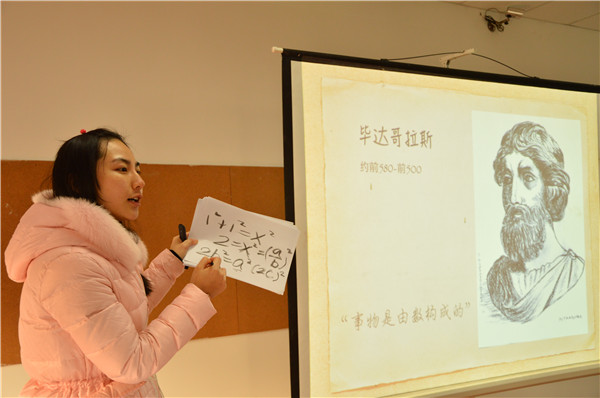 1²+1²=x²
2=x²=(a/b)²
2b²=a²(2c)²
毕达哥拉斯
约前580-前500
“事物是由数构成的”